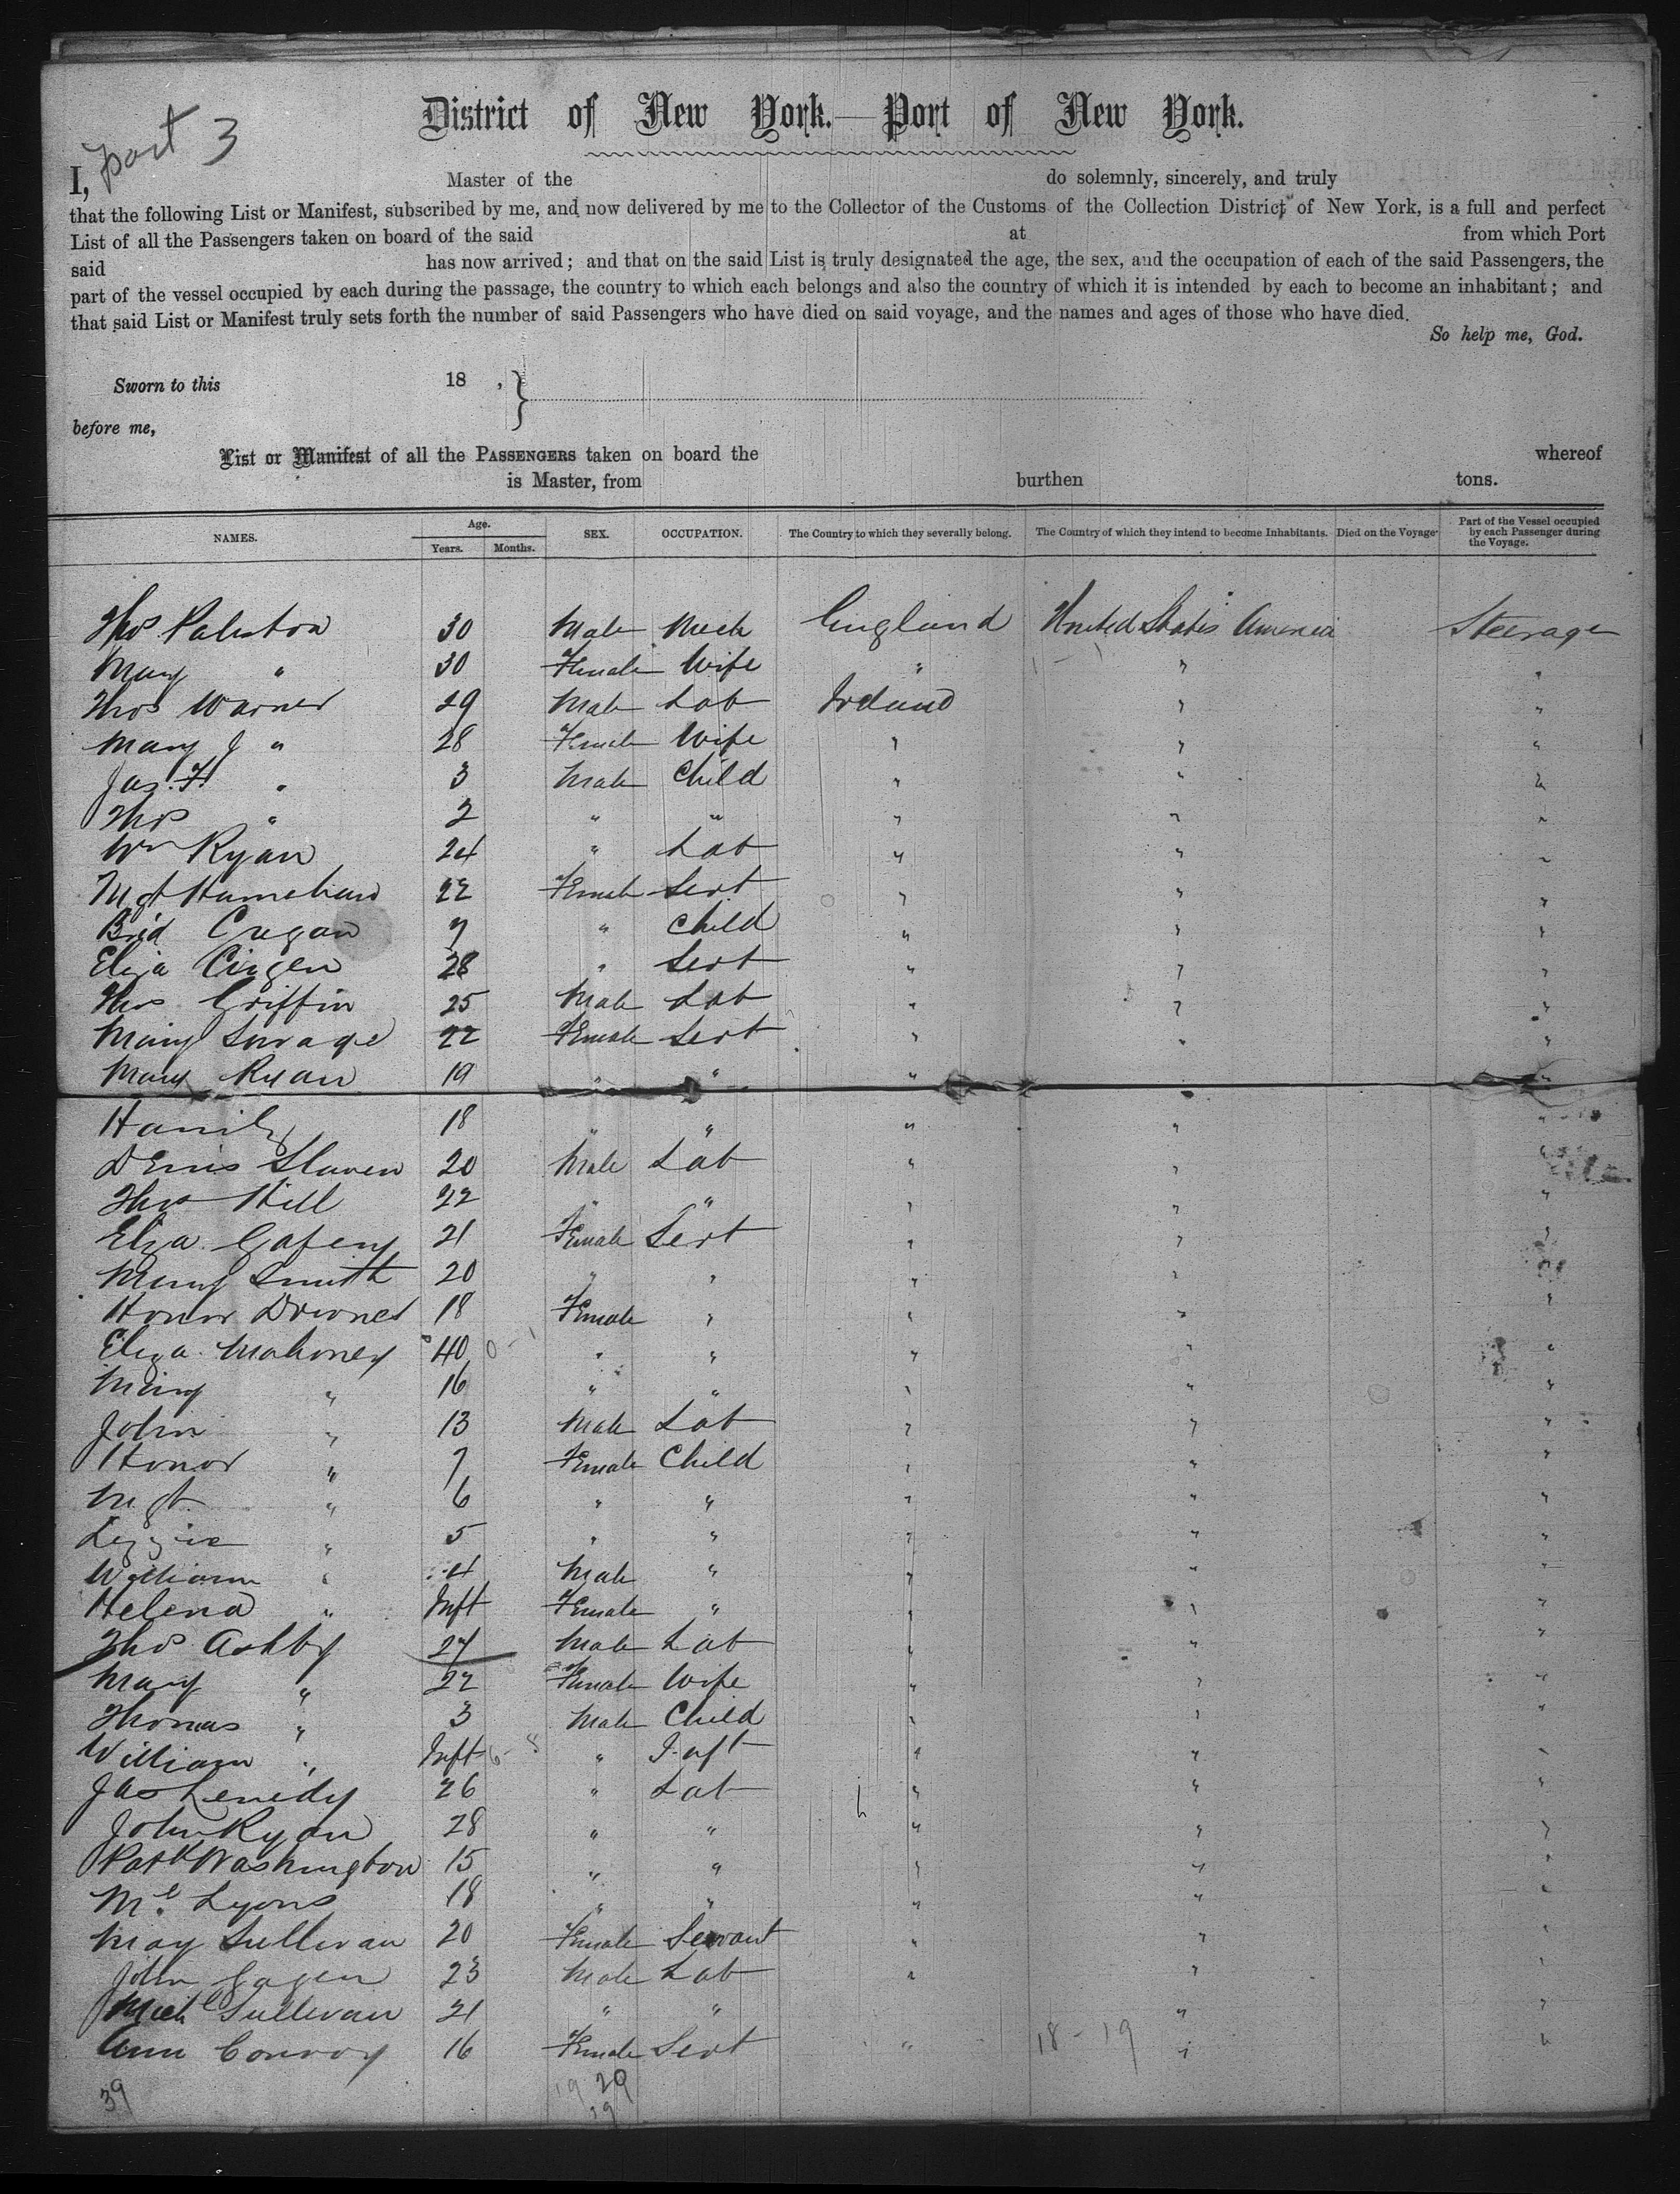 part 3
District of New York.—Port of New York.
I, Master of the do solemnly, sincerely, and truly
that the following List or Manifest, subscribed by me, and now delivered by me to the Collector of the Customs of the Collection District of New York, is a full and perfect
List of all the Passengers taken on board of the said at from which Port
said has now arrived; and that on the said List is truly designated the age, the sex, and the occupation of each of the said Passengers, the
part of the vessel occupied by each during the passage, the country to which each belongs and also the country of which it is intended by each to become an inhabitant; and
that said List or Manifest truly sets forth the number of said Passengers who have died on said voyage, and the names and ages of those who have died.
So help me, God.
Sworn to this 18 ,
before me,
List or Manifest of all the PASSENGERS taken on board the whereof
is Master, from burthen tons.
NAMES. Age. Years. Months. SEX. OCCUPATION. The Country to which they severally belong. The Country of which they intend to become Inhabitants. Died on the Voyage Part of the Vessel occupied by each Passenger during the Voyage.
Thos 30 Male Mech England United States America Steerage
Mary " 30 Female Wife " " "
Thos Warner 29 Male Lab Ireland " "
Mary J " 28 Female Wife " " "
Jas. F. " 3 Male Child " " "
Thos " 2 " " " " "
Wm Ryan 24 " Lab " " "
Mgt 22 Female Servt " " "
Brid Cregan 7 " Child " " "
Eliza 28 " Servt " " "
Thos Griffin 25 Male Lab " " "
Mary Savage 22 Female Servt " " "
Mary Ryan 19 " " " " "
18 " " " " "
Denis Slaven 20 Male Lab " " "
Thos Hill 22 " " " " "
Eliza Gafeny 21 Female Servt " " "
Mary Smith 20 " " " " "
Honor Downes 18 Female " " " "
Eliza Mahoney 40 " " " " "
Mary " 16 " " " " "
John " 13 Male Lab " " "
Honor " 7 Female Child " " "
Mgt " 6 " " " " "
Lizzie " 5 " " " " "
William " 4 Male " " " "
Helena " Inft Female " " " "
Thos Ashby 27 Male Lab " " "
Mary " 22 Female Wife " " "
Thomas " 3 Male Child " " "
William " Inft " Inft " " "
Jas Kenedy 26 " Lab " " "
John Ryan 28 " " " " "
Patk Washington 15 " " " " "
Ml Lyons 18 " " " " "
May Sullivan 20 Female Servant " " "
John Gagen 23 Male Lab " " "
Michl Sullivan 21 " " " "
Ann Conroy 16 Female Servt " 18-19 " "
39 19 20
19